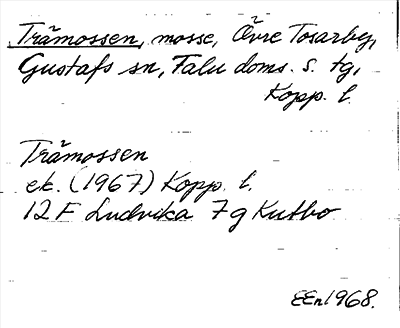 Trämossen, mosse, Övre Tosarby,
Gustafs sn, Falu doms. s. tg,
Kopp. l.
Trämossen
ek. (1967) Kopp. l.
12 F Ludvika 7 g Kutbo
EEn 1968.